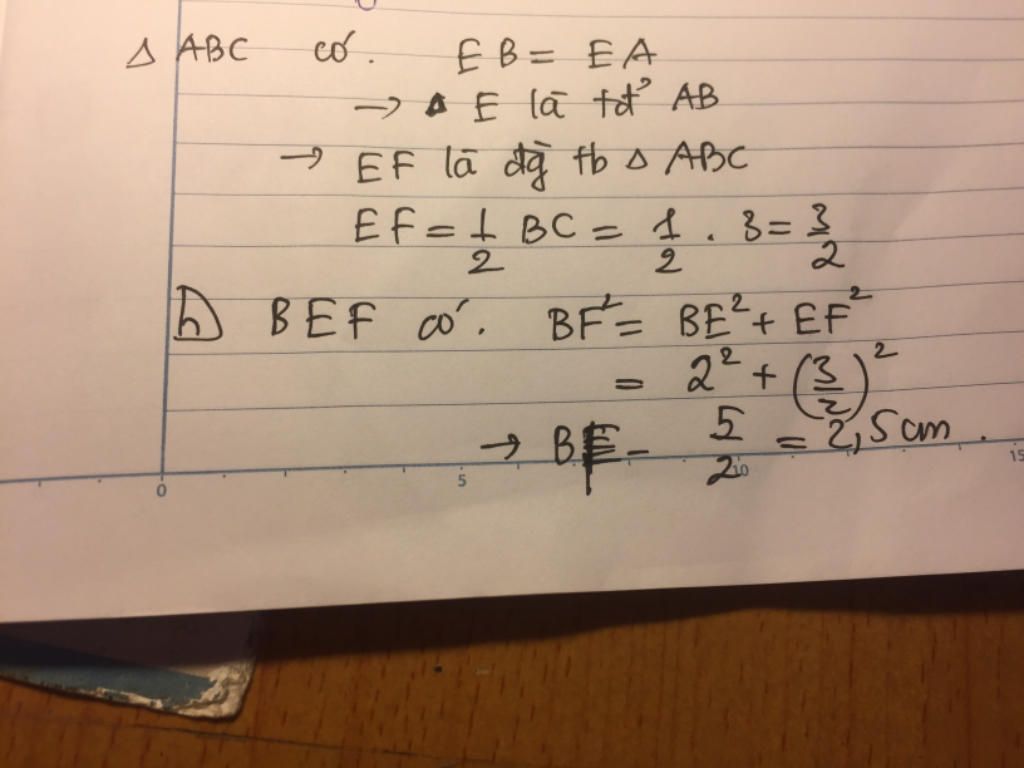 Δ ABC có. EB = EA
→ E là tđ' AB
→ EF là đg̀ tb Δ ABC
EF = 1/2 BC = 1/2 . 3 = 3/2
h) BEF có. BF² = BE² + EF²
= 2² + (3/2)²
→ BF = 5/2 = 2,5 cm.
0 5 10 15